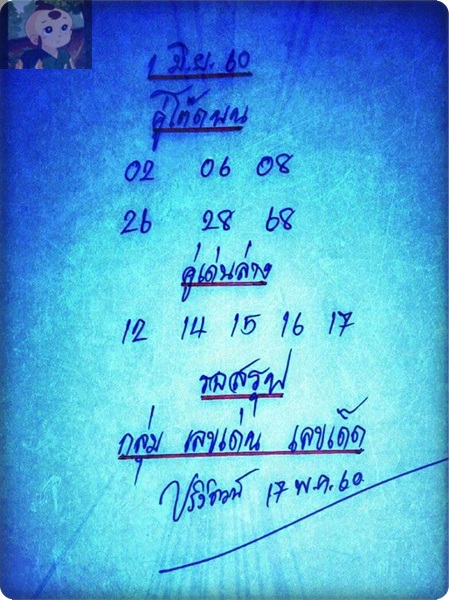 1 มิ.ย. 60
คู่โต๊ดบน
02 06 08
26 28 68
คู่เด่นล่าง
12 14 15 16 17
กลุ่ม เลขเด่น เลขเด็ด
17 พ.ค. 60